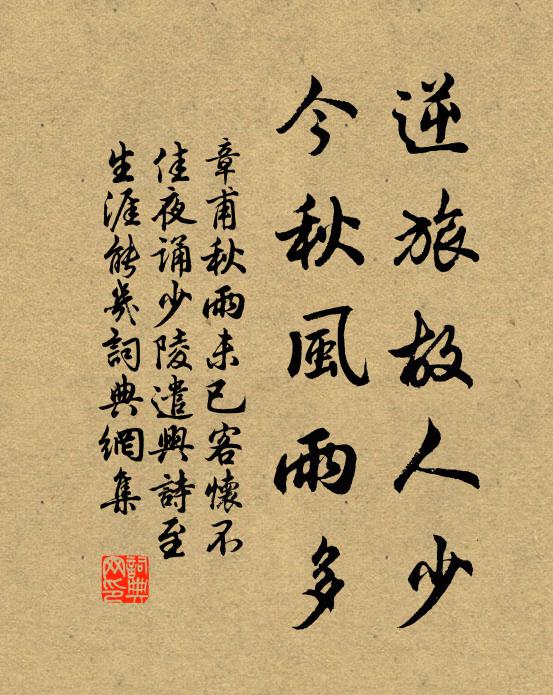 逆旅故人少
今秋風雨多
章甫秋雨未已客懷不
佳夜誦少陵遣興詩至
生涯能幾詞典網集
詞典
网印